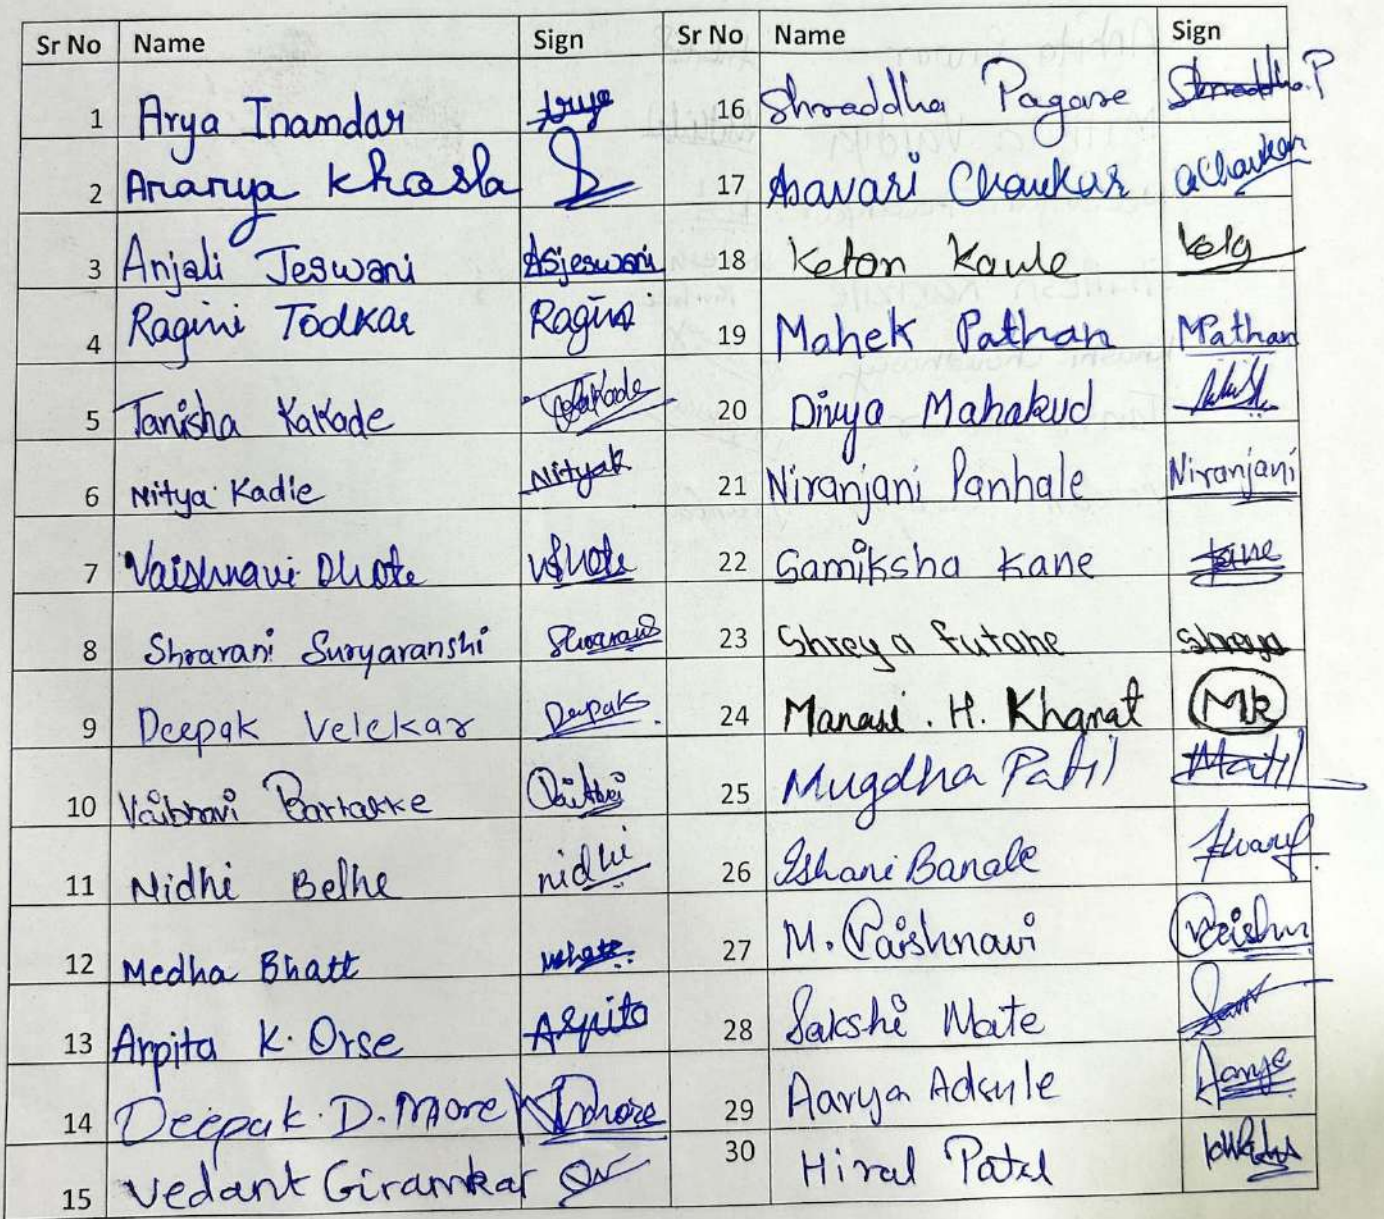 Sr No Name Sign Sr No Name Sign
1 Arya Inamdar Arya 16 Shraddha Pagare Shraddha.P
2 Ananya Khosla 17 Asavari Chaukar aChaukar
3 Anjali Jeswani Asjeswani 18 Ketan Kawle
4 Ragini Todkar Ragini 19 Mahek Pathan MPathan
5 Tanisha Kakade TKakade 20 Divya Mahakud
6 Nitya Kadle NityaK 21 Niranjani Panhale Niranjani
7 Vaishnavi Dhote VDhote 22 Samiksha Kane Kane
8 Shravani Suryavanshi Shravani 23 Shreya Futane Shreya
9 Deepak Velekar Deepak 24 Manasi . H. Kharat MK
10 Vaibhavi Bartakke 25 Mugdha Patil
11 Nidhi Belhe nidhi 26 Ishani Banale
12 Medha Bhatt 27 M. Vaishnavi Vaishu
13 Arpita K. Orse Arpita 28 Sakshi Mate
14 Deepak. D. More Dmore 29 Aarya Adsule Aarya
15 Vedant Giramkar 30 Hiral Patel